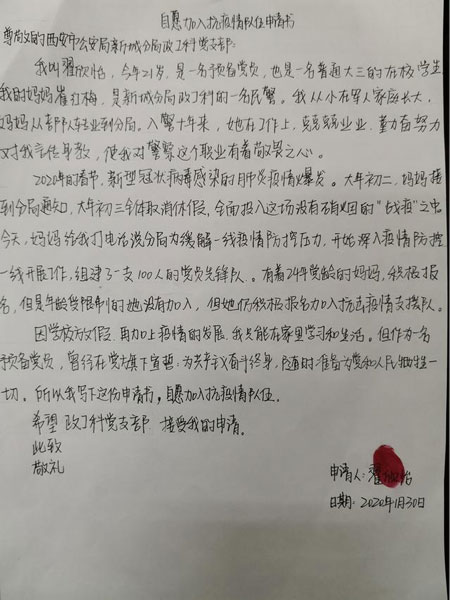 自愿加入抗疫情队伍申请书
尊敬的西安市公安局新城分局政工科党支部:
我叫翟欣怡，今年21岁，是一名预备党员，也是一名普通大三的在校学生
我的妈妈崔红梅，是新城分局政工科的一名民警。我从小在军人家庭长大，
妈妈从部队转业到分局。入警十年来，她在工作上，兢兢业业，勤奋努力
对我言传身教，使我对警察这个职业有着敬畏之心。
2020年的春节，新型冠状病毒感染的肺炎疫情爆发。大年初二，妈妈接
到分局通知，大年初三全体取消休假，全面投入这场没有硝烟的“战疫”之中
今天，妈妈给我打电话说分局为缓解一线疫情防控压力，开始深入疫情防控
一线开展工作，组建了一支100人的党员先锋队。有着24年党龄的妈妈，积极报
名，但是年龄受限制的她没有加入，但她仍积极报名加入抗击疫情支援队。
因学校放假，再加上疫情的发展，我只能在家里学习和生活。但作为一名
预备党员，曾经在党旗下宣誓:为共产主义奋斗终身，随时准备为党和人民牺牲一
切。所以我写下这份申请书，自愿加入抗疫情队伍。
希望政工科党支部 接受我的申请。
此致
敬礼
申请人:翟欣怡
日期:2020年1月30日